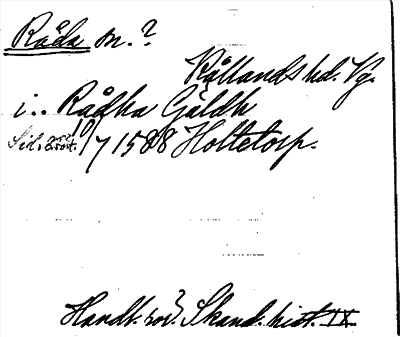 Råda sn.?
Kållands hd. Vg.
i.. Rådha Gäldh
Sil. 10/7 1588 Holtetorp.
Handl. rör. Skand. hist. IX